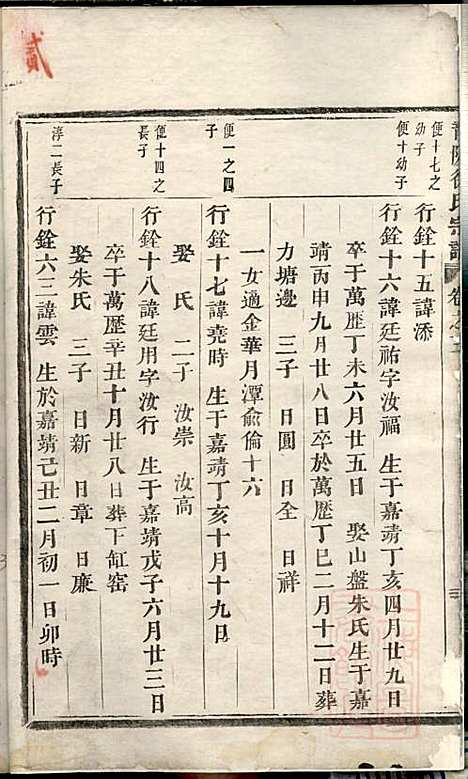 貳
徐氏宗譜
便十七之幼子
行銓十五諱添
便十幼子
行銓十六諱廷祐字汝福 生于嘉靖丁亥四月廿九日
卒于萬歷丁未六月廿五日 娶山盤朱氏生于嘉
靖丙申九月廿八日卒於萬歷丁巳二月十二日葬
力塘邊 三子 日圓 日全 日祥
一女適金華月潭俞倫十六
便一之四子
行銓十七諱堯時 生于嘉靖丁亥十月十九日
娶 氏 二子 汝崇 汝高
便十四之長子
行銓十八諱廷用字汝行 生于嘉靖戊子六月廿三日
卒于萬歷辛丑十月廿八日葬下缸窑
娶朱氏 三子 日新 日章 日廉
淳二長子
行銓六三諱雲 生於嘉靖己丑二月初一日卯時